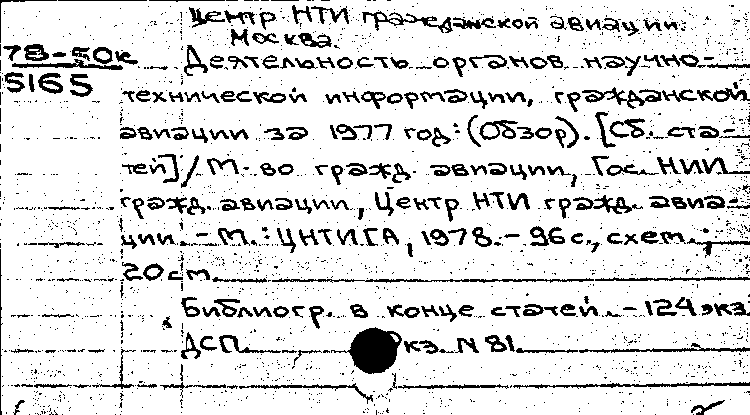 Центр НТИ гражданской авиации.
Москва.
78-50к
5165
Деятельность органов научно-
технической информации, гражданской
авиации за 1977 год: (Обзор). [Сб. ста-
тей]/М-во гражд. авиации, Гос. НИИ
гражд. авиации, Центр НТИ гражд. авиа-
ции. - М.: ЦНТИГА, 1978. - 96 с., схем.;
20 см.
Библиогр. в конце статей. - 124 экз.
ДСП. кз. N 81.